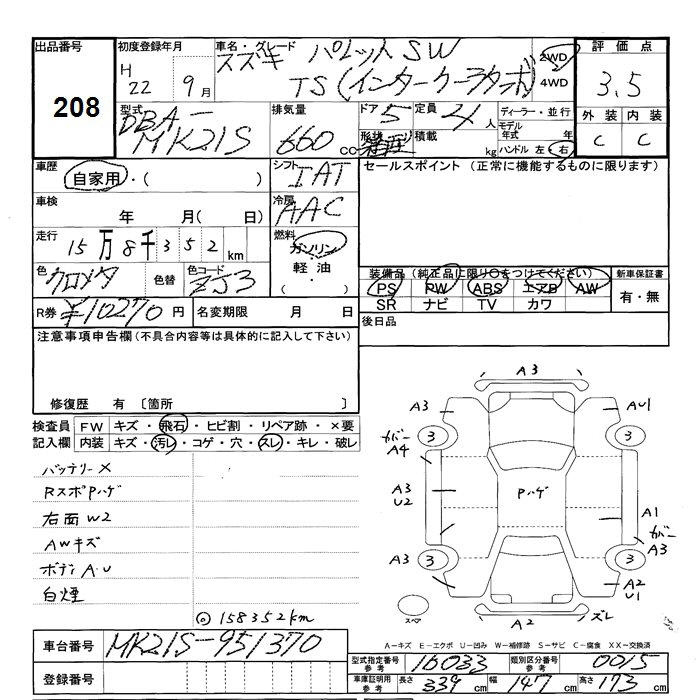 出品番号 初度登録年月 車名・グレード 評価点
208
H 22 9月 スズキ パレットSW
TS(インタークーラターボ) 2WD 4WD 3.5
型式 排気量 ドア 定員 ディーラー・並行 外装 内装
DBA- MK21S 660 cc 5 4人 モデル年式 年
形状 積載 kg ハンドル 左・右 C C
車歴 シフト セールスポイント (正常に機能するものに限ります)
自家用・( ) IAT
車検 年 月( 日) 冷房 AAC
走行 15万8千352km 燃料 ガソリン
軽油
( ・ )
色 クロメタ 色替 色コード ZJ3
装備品(純正品に限り○をつけてください) 新車保証書
PS PW ABS エアB AW 有・無
SR ナビ TV カワ
R券 ¥10270円 名変期限 月 日 後日品
注意事項申告欄(不具合内容等は具体的に記入して下さい)
修復歴 有 〔箇所 〕
検査員 FW キズ・飛石・ヒビ割・リペア跡・×要
記入欄 内装 キズ・汚レ・コゲ・穴・スレ・キレ・破レ
バッテリーX
RスポPハゲ
右面W2
AWキズ
ボディA.U
白煙
◎158352km
A3
A3 AU1
3 3
カバー A4
A3 U2 Pハゲ A1
カバー A3
A3 3 3 A2 U1
スペア A2 ズレ
A-キズ E-エクボ U-凹み W-補修跡 S-サビ C-腐食 XX-交換済
車台番号 MK21S-951370
型式指定番号 参考 16033 類別区分番号 参考 0015
登録番号
車庫証明用 参考 長さ 339cm 幅 147cm 高さ 173cm